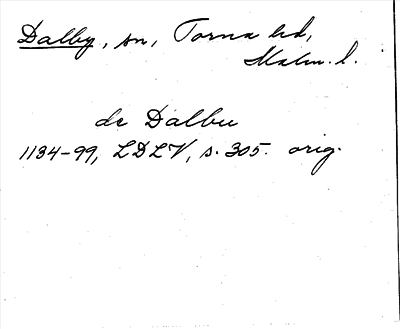 Dalby, sn, Torna hd,
Malm. l.
de Dalbu
1134-99, LDLV, s. 305. orig.